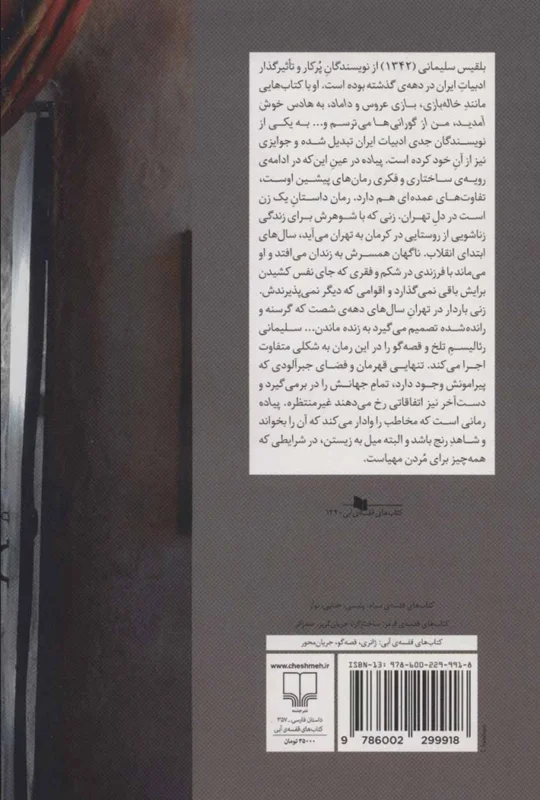 بلقیس سلیمانی (۱۳۴۲) از نویسندگانِ پُرکار و تأثیرگذار
ادبیاتِ ایران در دهه‌ی گذشته بوده است. او با کتاب‌هایی
مانندِ خاله‌بازی، بازی عروس و داماد، به هادس خوش
آمدید، من از گورانی‌ها می‌ترسم و... به یکی از
نویسندگان جدی ادبیات ایران تبدیل شده و جوایزی
نیز از آنِ خود کرده است. پیاده در عینِ این‌که در ادامه‌ی
رویه‌ی ساختاری و فکری رمان‌های پیشین اوست،
تفاوت‌های عمده‌ای هم دارد. رمان داستانِ یک زن
است در دلِ تهران. زنی که با شوهرش برای زندگی
زناشویی از روستایی در کرمان به تهران می‌آید، سال‌های
ابتدای انقلاب. ناگهان همسرش به زندان می‌افتد و او
می‌ماند با فرزندی در شکم و فقری که جای نفس کشیدن
برایش باقی نمی‌گذارد و اقوامی که دیگر نمی‌پذیرندش.
زنی باردار در تهرانِ سال‌های دهه‌ی شصت که گرسنه و
رانده‌شده تصمیم می‌گیرد به زنده ماندن... سلیمانی
رئالیسم تلخ و قصه‌گو را در این رمان به شکلی متفاوت
اجرا می‌کند. تنهایی قهرمان و فضای جبرآلودی که
پیرامونش وجود دارد، تمامِ جهانش را در برمی‌گیرد و
دست‌آخر نیز اتفاقاتی رخ می‌دهند غیرمنتظره. پیاده
رمانی است که مخاطب را وادار می‌کند که آن را بخواند
و شاهدِ رنج باشد و البته میل به زیستن، در شرایطی که
همه‌چیز برای مُردن مهیاست.
کتاب‌های قفسه‌ی آبی
کتاب‌های قفسه‌ی سیاه: پلیسی، جنایی، نوآر
کتاب‌های قفسه‌ی قرمز: ساختارگرا، جریان‌گریز، ضدژانر
کتاب‌های قفسه‌ی آبی: ژانری، قصه‌گو، جریان‌محور
www.cheshmeh.ir
نشرچشمه
داستان فارسی ـ ۳۵۷
کتاب‌های قفسه‌ی آبی
۳۵۰۰۰ تومان
ISBN-13: 978-600-229-991-8
9 786002 299918